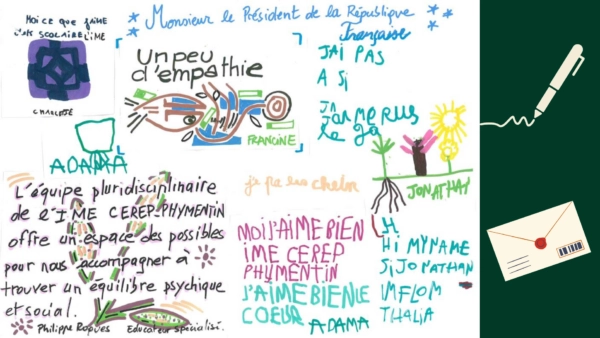 MOI CE QUE J'AIME
CHARLOTTE
Monsieur le Président de la République
Française
Un peu
d'empathie
FRANCINE
J'AI PAS
A SI
ADAMA
JONATHAN
L'équipe pluridisciplinaire
de l'IME CEREP-PHYMENTIN
offre un espace des possibles
pour nous accompagner à
trouver un équilibre psychique
et social.
Philippe Roques Educateur spécialisé.
MOI J'AIME BIEN
IME CEREP
PHYMENTIN
J'AIME BIEN LE
COEUR ADAMA
HI MY NAME
SI JONATHAN
IM FLOM
THALIA